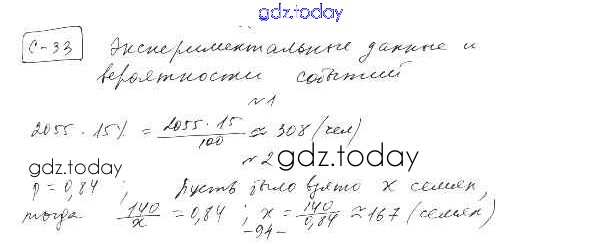 gdz.today
С-33 Экспериментальные данные и
вероятности событий
№1
2055 · 15% = 2055·15/100 ≈ 308 (чел)
№2
gdz.today
gdz.today
p = 0,84 ; Пусть было взято x семян,
тогда 140/x = 0,84 ; x = 140/0,84 ≈ 167 (семян)
-94-